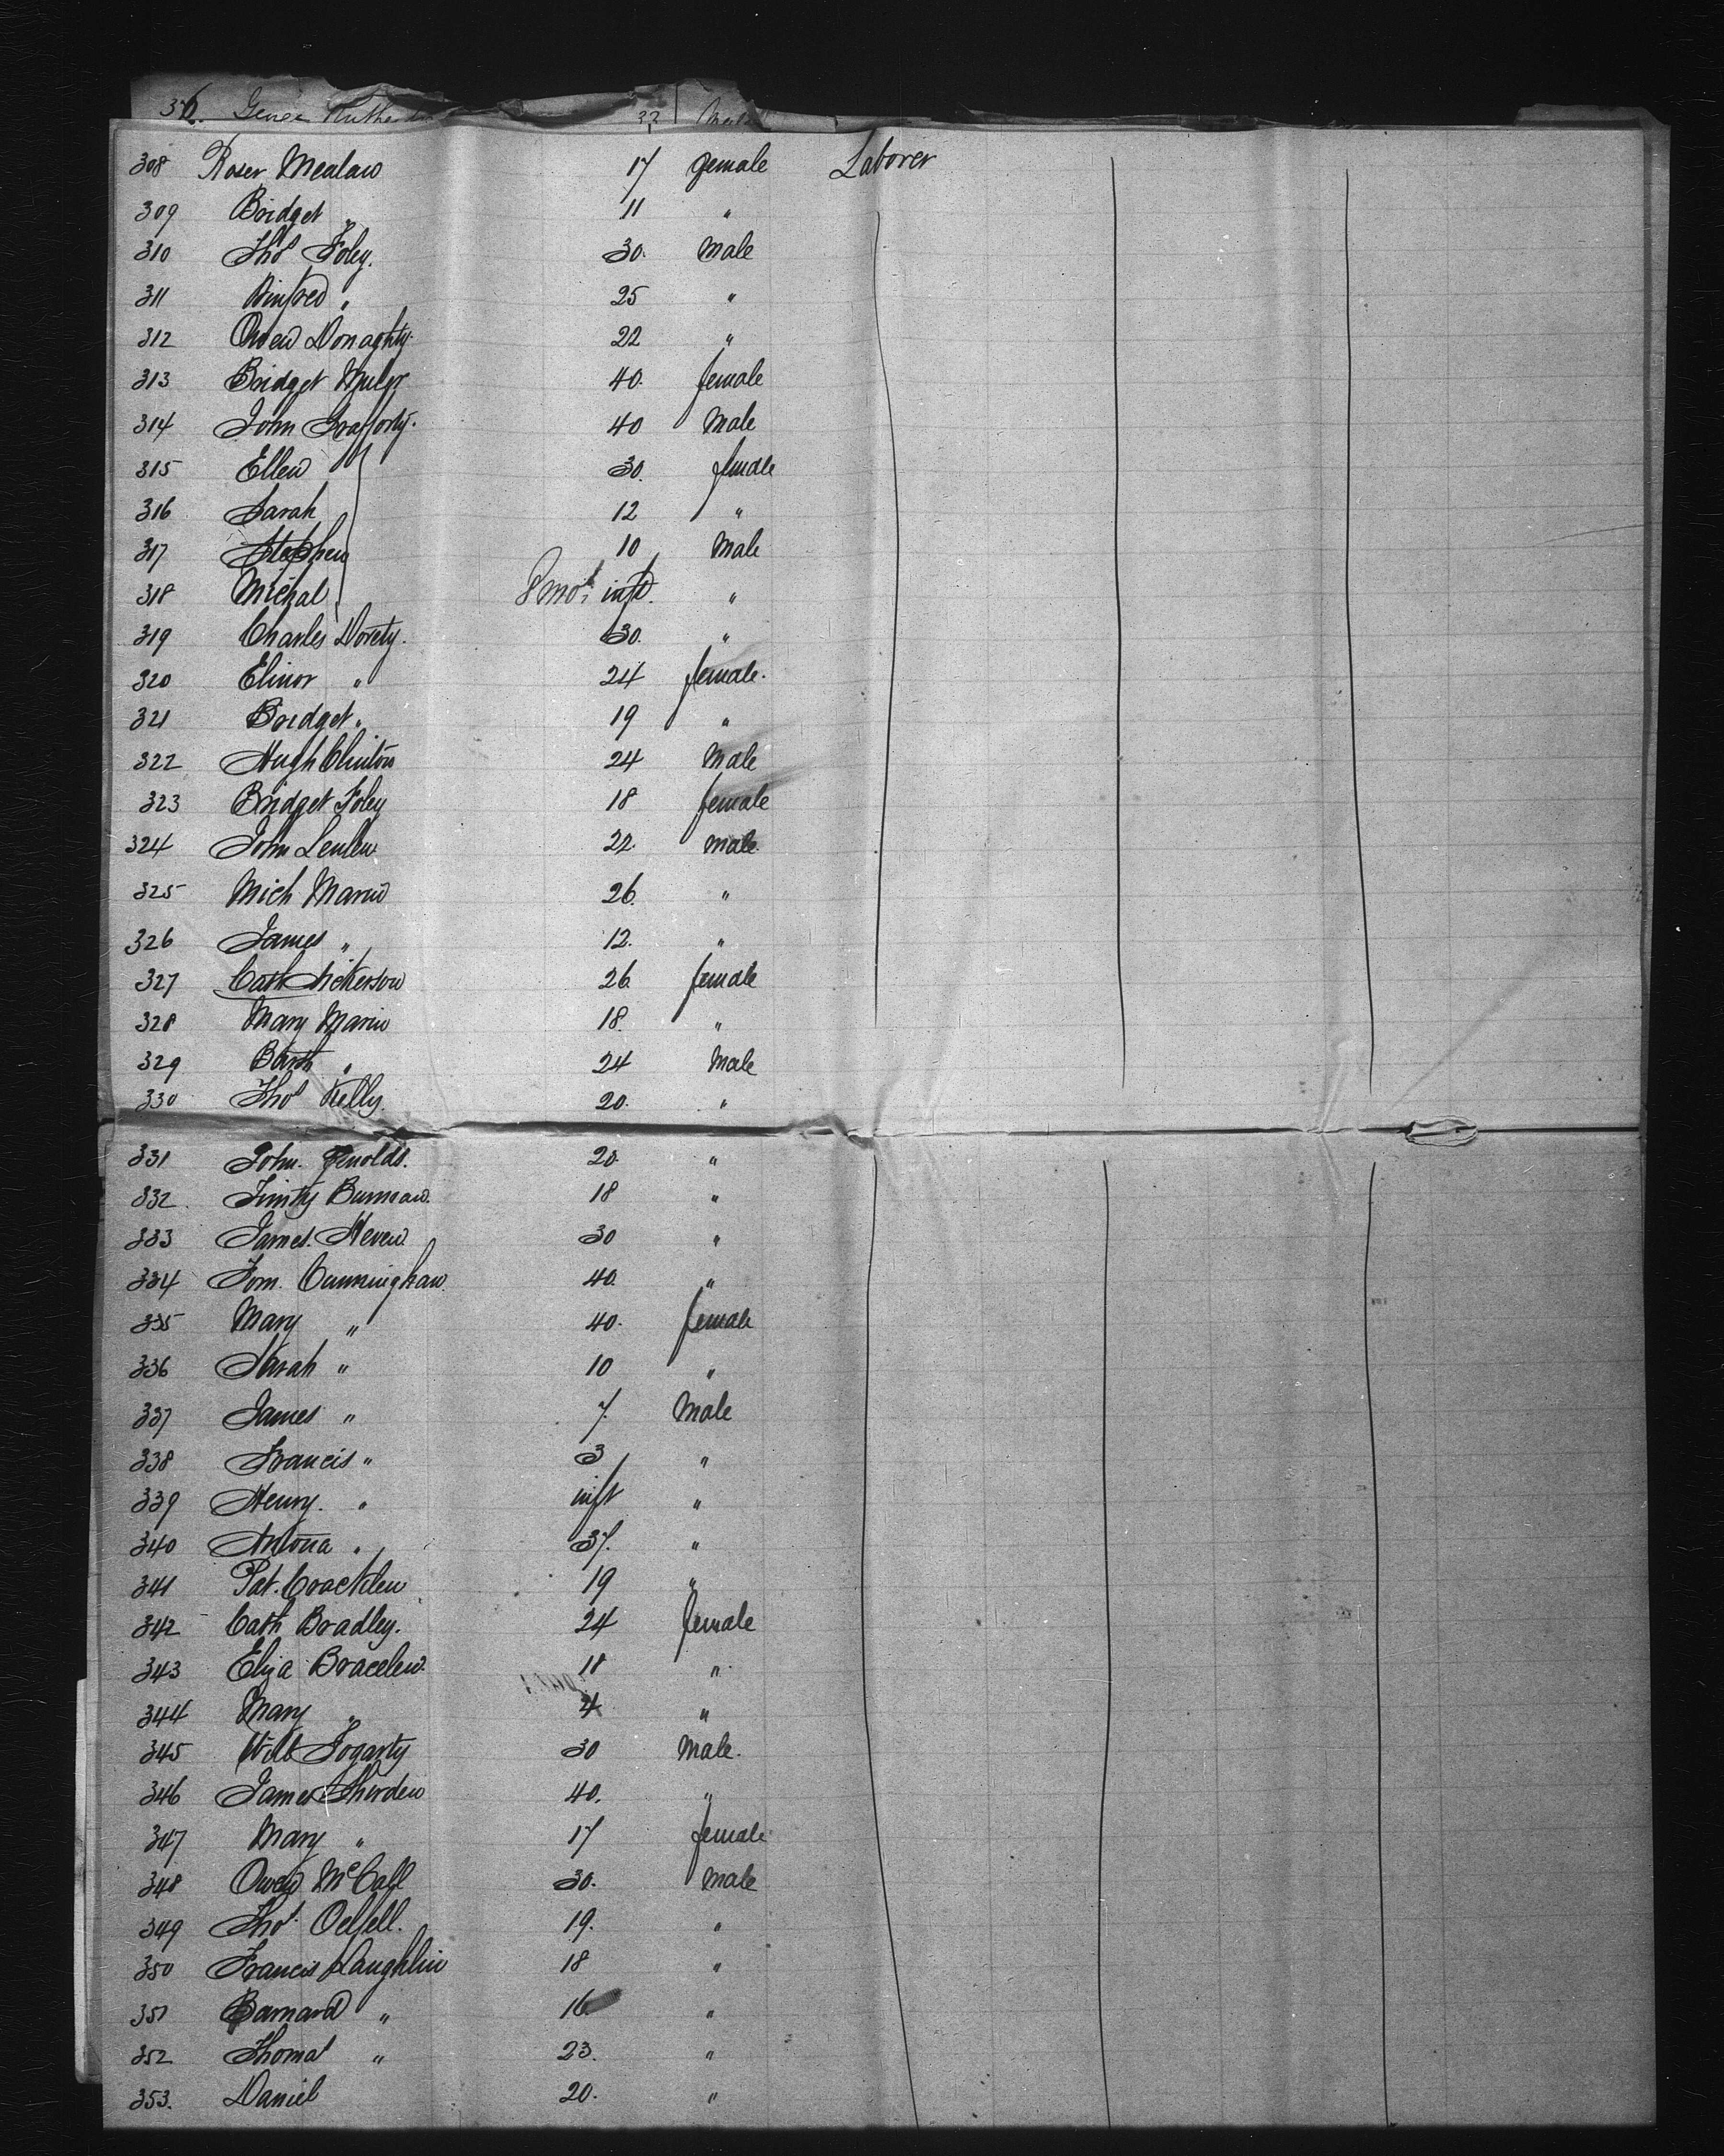 36. George 22 Male
308 Roser Mealaw 17 female Laborer
309 Bridget " 11 "
310 Thos Foley. 30. Male
311 Winfred " 25 "
312 Owen Donaghty. 22 "
313 Bridget 40. female
314 John 40 Male
315 Ellen 30. female
316 Sarah 12 "
317 Stephen 10 Male
318 Michal 8 mos inft. "
319 Charles Dorety. 30. "
320 Elinor " 24 female.
321 Bridget " 19 "
322 Hugh Clinton 24 Male
323 Bridget Foley 18 female
324 John 22. male.
325 Mich 26. "
326 James " 12. "
327 Cath 26 female
328 Mary 18. "
329 Barth " 24 Male
330 Thos Kelly. 20. "
331 John. 20. "
332 18 "
333 James. Heven. 30 "
334 Tom. Cunningham. 40. "
335 Mary " 40. female
336 Sarah " 10 "
337 James " 7. Male
338 Francis " 3 "
339 Henry. " inft "
340 " 37. "
341 Pat. 19 "
342 Cath Bradley. 24 female
343 Eliza Bracelen. 18 "
344 Mary " 4 "
345 Will Fogarty 30 Male.
346 James 40. "
347 Mary " 17 female
348 Owen McCall 30. Male
349 Thos. 19. "
350 Francis Laughlin 18 "
351 Barnard " 16 "
352 Thomas " 23. "
353. Daniel 20. "